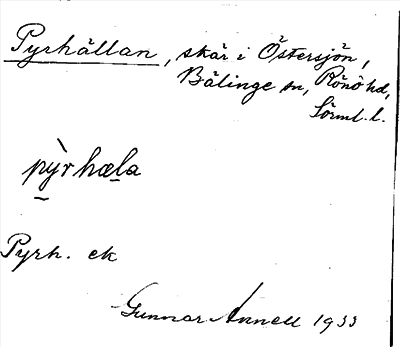 Pyrhällan, skär i Östersjön,
Bälinge sn, Rönö hd,
Sörml. l.
pỳrhæla
Pyrh. ek
Gunnar Annell 1933